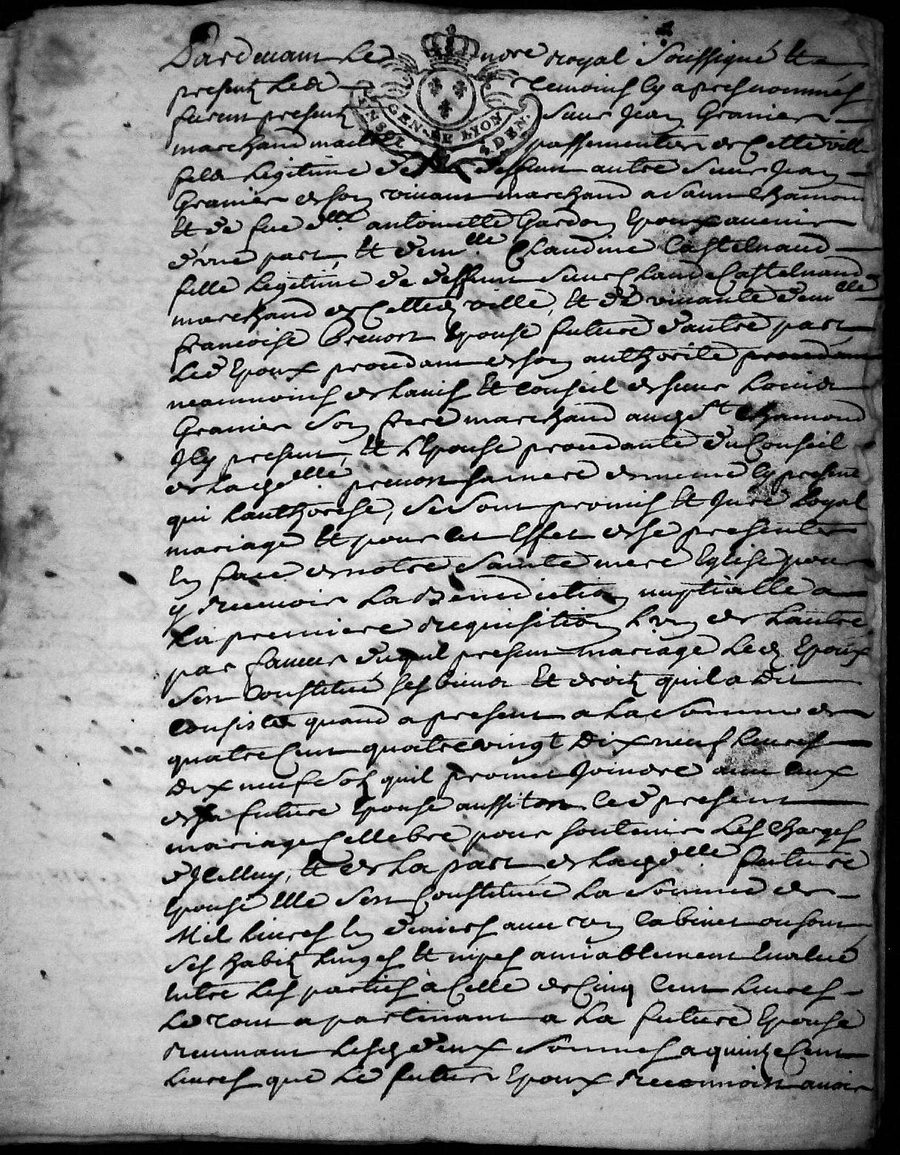 Pardevant le nore royal Soussigné &
present led temoins cy apres nommés
furent present Sieur Jean Granier
GEN. DE LYON
4 DEN.
marchand maitre passementier de Cette ville
fils legitime de deffunt autre Sieur Jean
Granier de son vivant marchand a Saint Chamond
Et de feue dlle antoinette Gardon Epoux avenir
d'une part, Et demlle Claudine Castelnaud
fille legitime de deffunt Sieur Claude Castelnaud
marchand de Cetted ville, Et de vivante demlle
francoise Prevost Epouse future d'autre part
Led Epoux procedant de son authorité procedant
neanmoins de Lavis Et Conseil de sieur Louis
Granier Son frere marchand aud St Chamond
Icy present, Et L'Epouse procedante du Conseil
de lad delle prevost sa mere de meme Cy presente
qui Lauthorise, Se Sont promis Et Juré Loyal
mariage Et pour Cet Effet de se presenter
En face de notre Sainte mere Eglise pour
y recevoir La Benediction nuptialle a
La premiere requisition Lun de Lautre
par faveur duquel present mariage Led Epoux
Sest Constitué Ses biens Et droits quil a dit
Consister quand a present a La Somme de
quatre Cent quatre vingt Dix neuf Livres
Dix neuf Sols quil promet Joindre avec Ceux
de Sa future Epouse aussitost led present
mariage Cellebré pour Soutenir Les Charges
d'Icelluy, Et de La part de Lad delle future
Epouse Elle Sest Constitué La Somme de
Mil Livres En deniers avec un Cabinet ou sont
Ses habits Linges Et nipes amiablement Evalué
Entre Les parties a Celle de Cinq Cent Livres
Le tout apartenant a La future Epouse
revenant Lesd deux Sommes a quinze Cent
Livres que Le futur Epoux reconnoist avoir